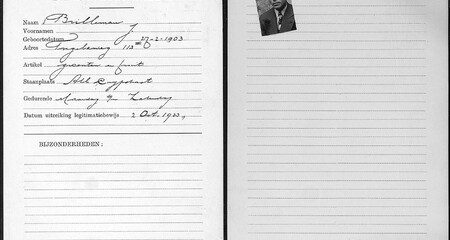 Naam Brilleman
Voornamen J.
Geboortedatum 27-2-1903
Adres 113
Artikel groenten en fruit
Staanplaats Alb Cuypstraat
Gedurende Maandag t/m Zaterdag
Datum uitreiking legitimatiebewijs 2 Oct. 1922,
BIJZONDERHEDEN: